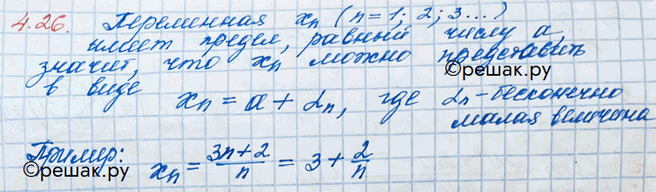 4.26. Переменная xₙ (n = 1; 2; 3...)
имеет предел, равный числу a,
значит, что xₙ можно представить
©решак.ру
в виде
xₙ = a + αₙ, где αₙ - бесконечно
малая величина
Пример:
xₙ = (3n+2)/n = 3 + 2/n
©решак.ру